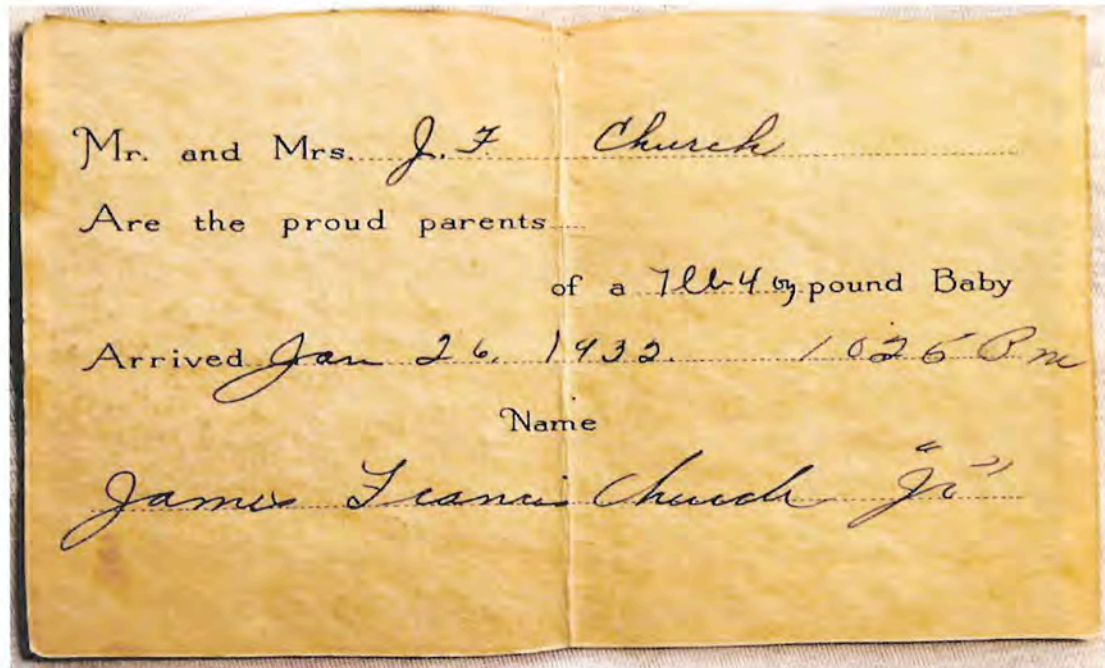 Mr. and Mrs. J. F Church
Are the proud parents
of a 7 lb 4 oz pound Baby
Arrived Jan 26, 1932. 1025 Pm
Name
James Francis Church "Jr"